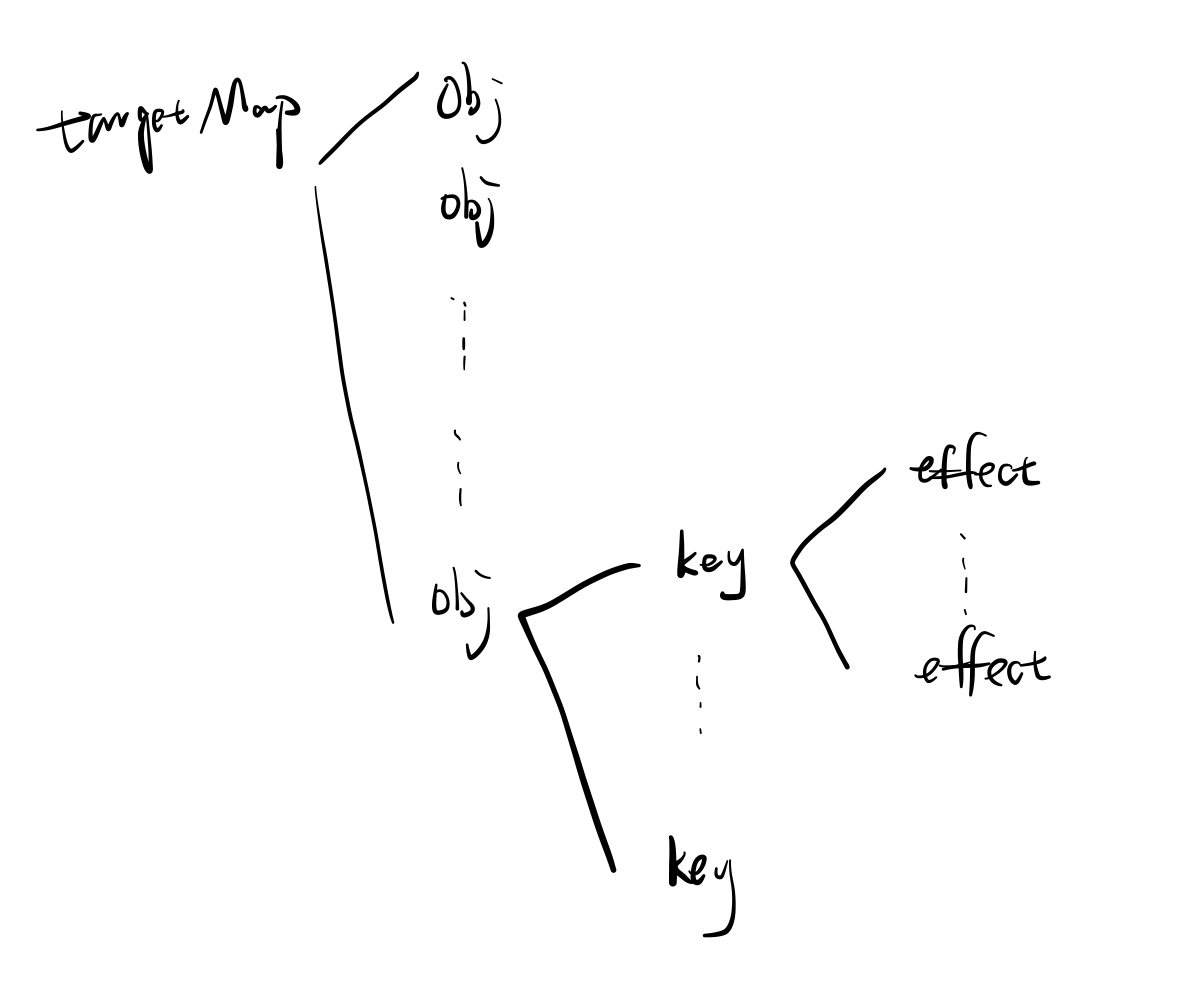 targetMap
obj
obj
obj
key
key
effect
effect